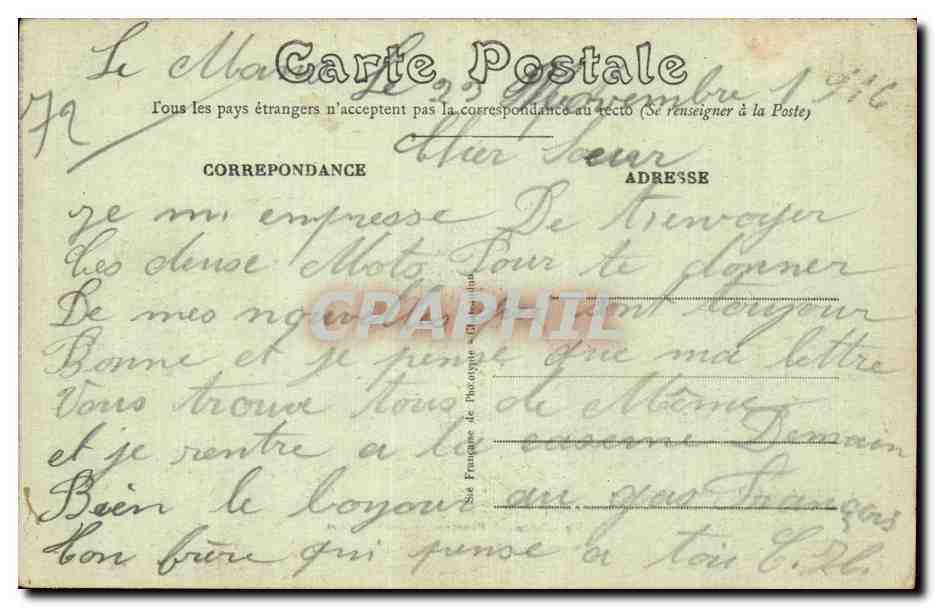 Carte Postale
Le Mans Le 22 Novembre 1916
72
Tous les pays étrangers n'acceptent pas la correspondance au recto (Se renseigner à la Poste)
Cher Sœur
CORREPONDANCE
ADRESSE
Je mi empresse De
Ces deuse Mots Pour te donner
De mes nouvelles qui sont toujour
CPAPHIL
Bonne et je pense que ma lettre
Vous trouve tous de Même
et je rentre a la caserne Demain
Bien le bonjour au gas François
Ton frère qui pense a toi
Sté Française de Phototypie